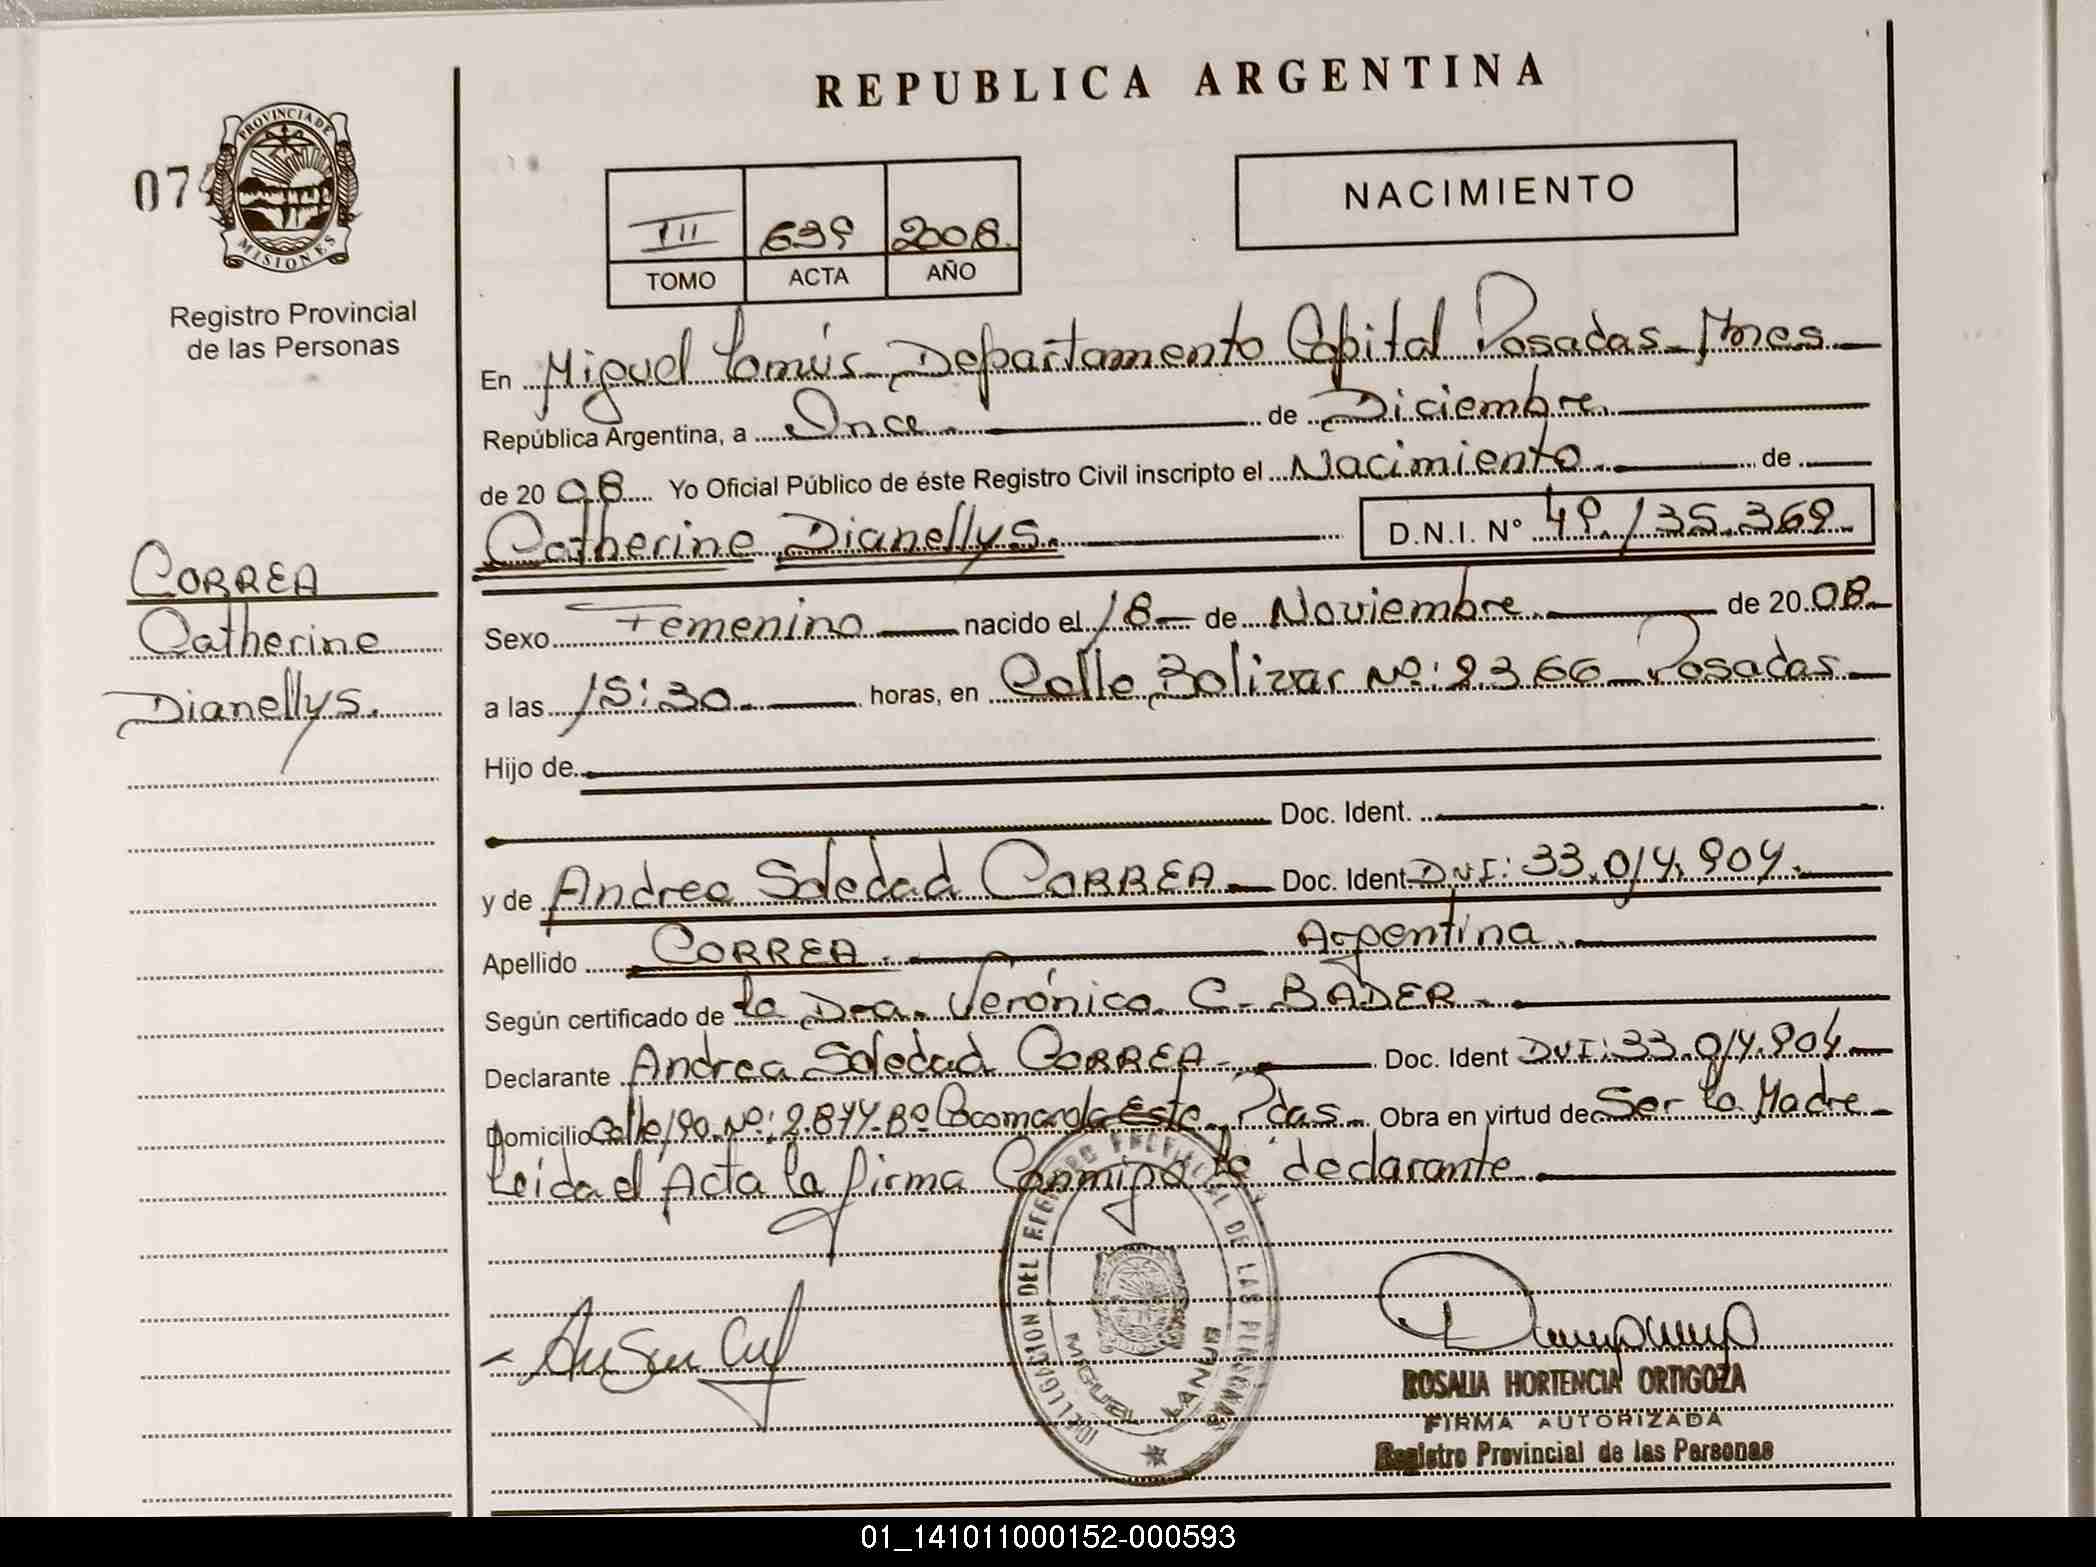 REPUBLICA ARGENTINA
07
PROVINCIA DE
MISIONES
Registro Provincial
de las Personas
NACIMIENTO
III 639 2008.
TOMO ACTA AÑO
En Miguel Lanús Departamento Capital Posadas Mnes
República Argentina, a Once de Diciembre
de 20 08 Yo Oficial Público de éste Registro Civil inscripto el Nacimiento de
Catherine Dianellys. D.N.I. Nº 49.135.369
CORREA
Catherine
Dianellys.
Sexo Femenino nacido el 18 de Noviembre de 20 08
a las 15:30 horas, en Calle Bolivar Nº: 2366 Posadas
Hijo de
Doc. Ident.
y de Andrea Soledad CORREA Doc. Ident DNI: 33.014.904.
Apellido CORREA. Argentina
Según certificado de la Dra. Verónica C. BADER
Declarante Andrea Soledad CORREA Doc. Ident DNI: 33.014.904
Domicilio Calle 190 Nº: 2.844 Bº Este Pdas. Obra en virtud de Ser la Madre
Leida el Acta la firma Conmigo la declarante
DELEGACION DEL REGISTRO PROVINCIAL DE LAS PERSONAS
MIGUEL LANUS
ROSALIA HORTENCIA ORTIGOZA
FIRMA AUTORIZADA
Registro Provincial de las Personas
01_141011000152-000593